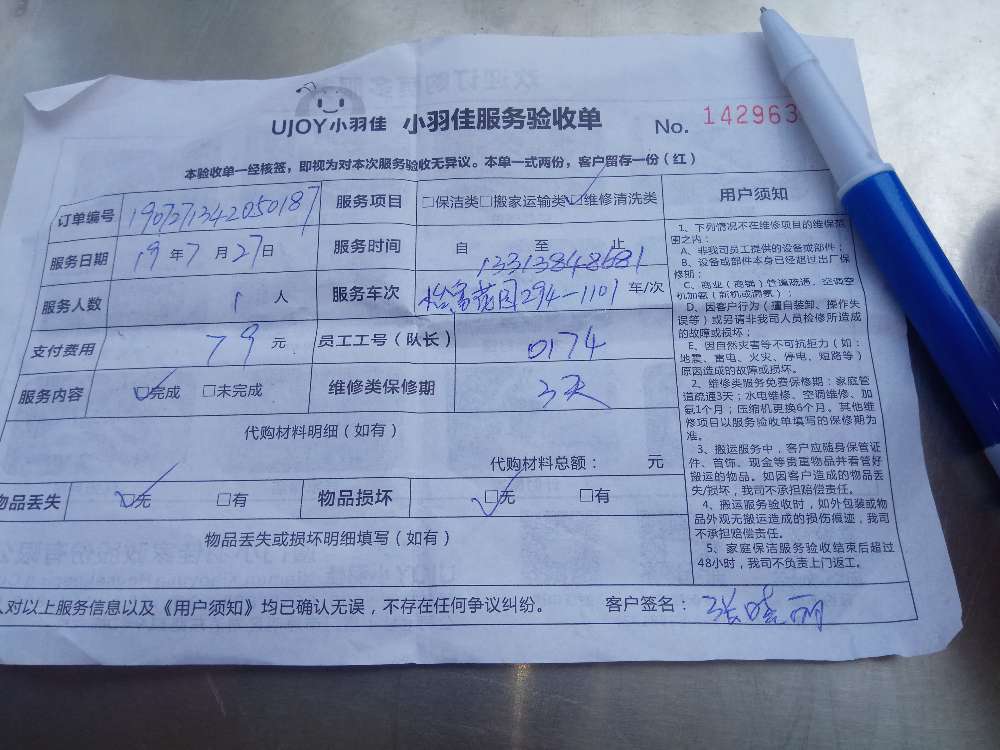 UJOY小羽佳 小羽佳服务验收单 No. 142963
本验收单一经核签，即视为对本次服务验收无异议。本单一式两份，客户留存一份（红）
订单编号 1907271342050187 服务项目 □保洁类□搬家运输类☑维修清洗类
服务日期 19年7月27日 服务时间 自 至 止
13313848681
服务人数 1 人 服务车次 怡富花园294-1101 年/次
支付费用 79 元 员工工号（队长） 0174
服务内容 ☑完成 □未完成 维修类保修期 3天
代购材料明细（如有）
代购材料总额： 元
物品丢失 ☑无 □有 物品损坏 ☑无 □有
物品丢失或损坏明细填写（如有）
用户须知
1、下列情况不在维修项目的维保范
围之内：
A、非我司员工提供的设备或部件；
B、设备或部件本身已经超过出厂保
修期；
C、商业（商铺）管道疏通，空调空
机加氨（新机或漏氨）；
D、因客户行为（擅自装卸、操作失
误等）或另请非我司人员检修所造成
的故障或损坏；
E、因自然灾害等不可抗拒力（如：
地震、雷电、火灾、停电、短路等）
原因造成的故障或损坏。
2、维修类服务免费保修期：家庭管
道疏通3天；水电维修、空调维修、加
氨1个月；压缩机更换6个月。其他维
修项目以服务验收单填写的保修期为
准。
3、搬运服务中，客户应随身保管证
件、首饰、现金等贵重物品并看管好
搬运的物品。如因客户造成的物品丢
失/损坏，我司不承担赔偿责任。
4、搬运服务验收时，如外包装或物
品外观无搬运造成的损伤痕迹，我司
不承担赔偿责任。
5、家庭保洁服务验收结束后超过
48小时，我司不负责上门返工。
人对以上服务信息以及《用户须知》均已确认无误，不存在任何争议纠纷。 客户签名：张晓丽